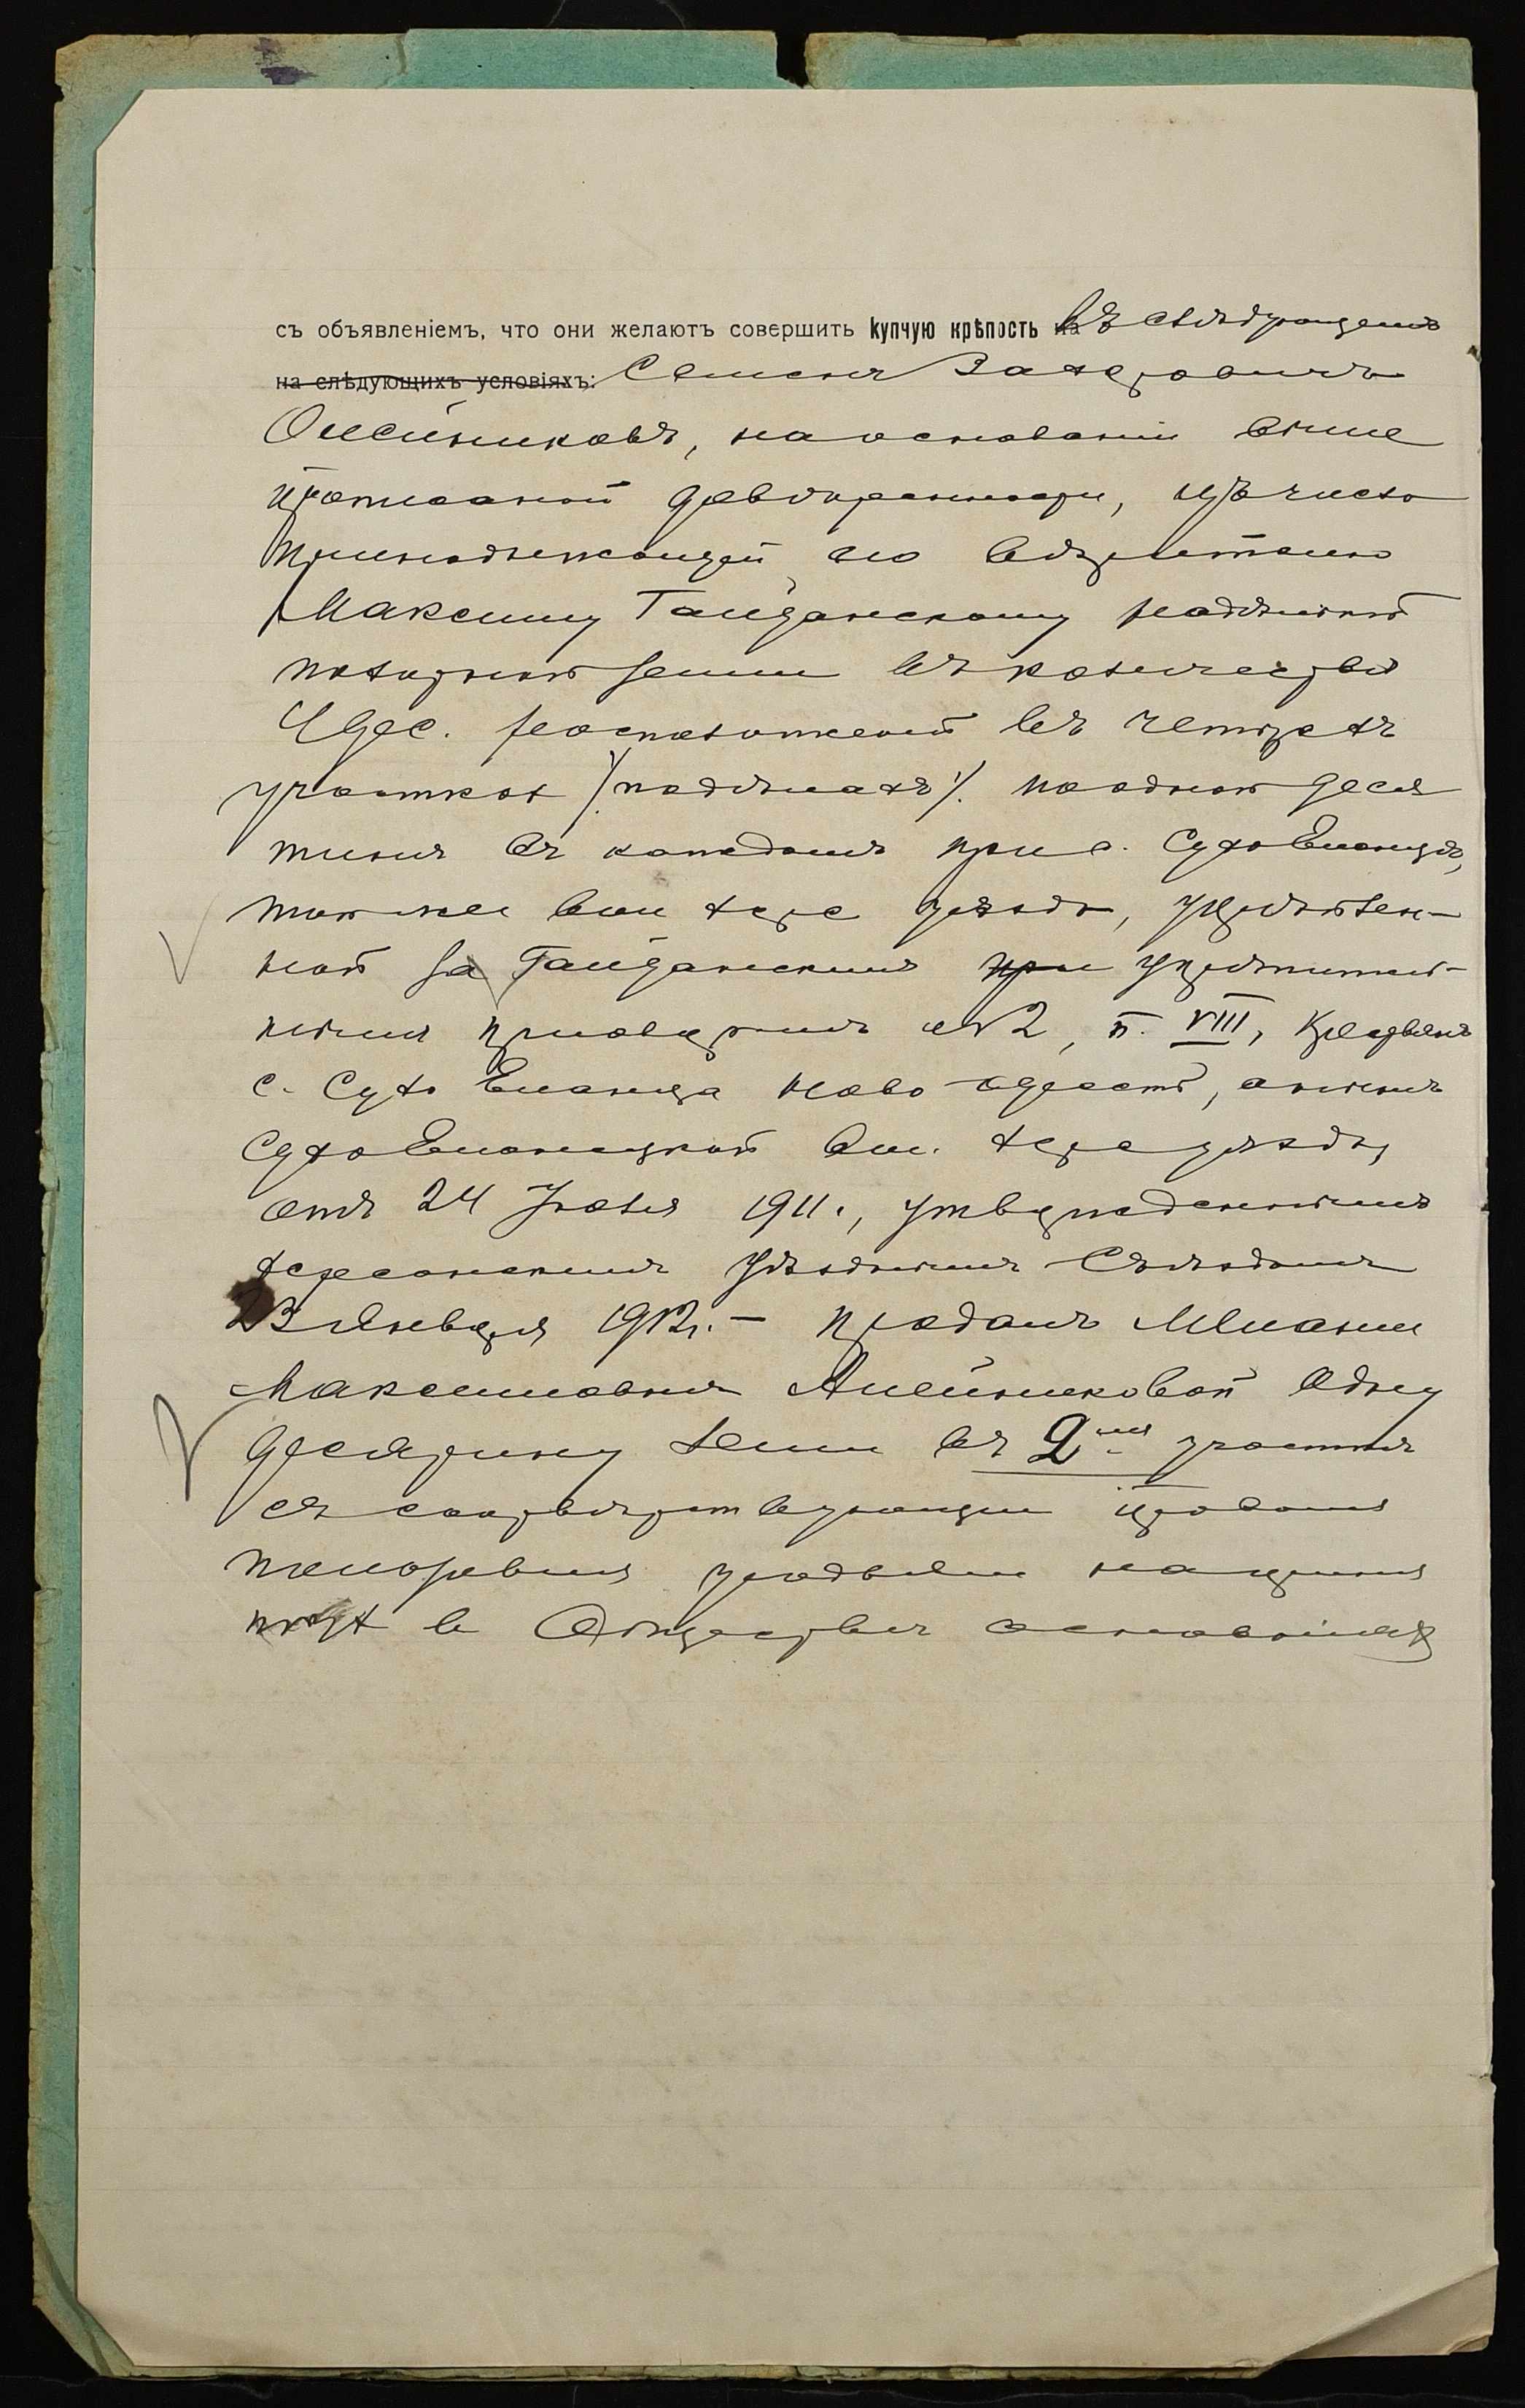 съ объявленіемъ, что они желаютъ совершить купчую крѣпость на въ слѣдующемъ
на слѣдующихъ условіяхъ: Семенъ Захаровичъ
Олейниковъ, на основаніи выше
прописанной довѣренности, изъ числа
принадлежащей его вѣрителю
Максиму Гайданскому надѣльной
полевой земли въ количествѣ
4 дес. расположенной въ четырехъ
участках /надѣлахъ/. по одной деся
тинѣ въ каждомъ при с. Сухо Еланцѣ,
той же вол Херс уѣзда, укрѣплен-
ной за Гайданскимъ при укрѣпитель-
нымъ приговоромъ № 2, п. VIII, крестьянъ
с. Сухо Еланца Ново Одесской, а нынѣ
Сухо Еланецкой вол. Херс уѣзда,
отъ 24 Іюля 1911., утвержденнымъ
Херсонскимъ Уѣзднымъ Съѣздомъ
23 Января 1912 г. – продалъ Меланіи
Максимовнѣ Алейниковой одну
десятину земли въ 2мъ участкѣ
съ соотвѣтствующимъ правомъ
пользованія угодьями на
в Обществѣ основаніях